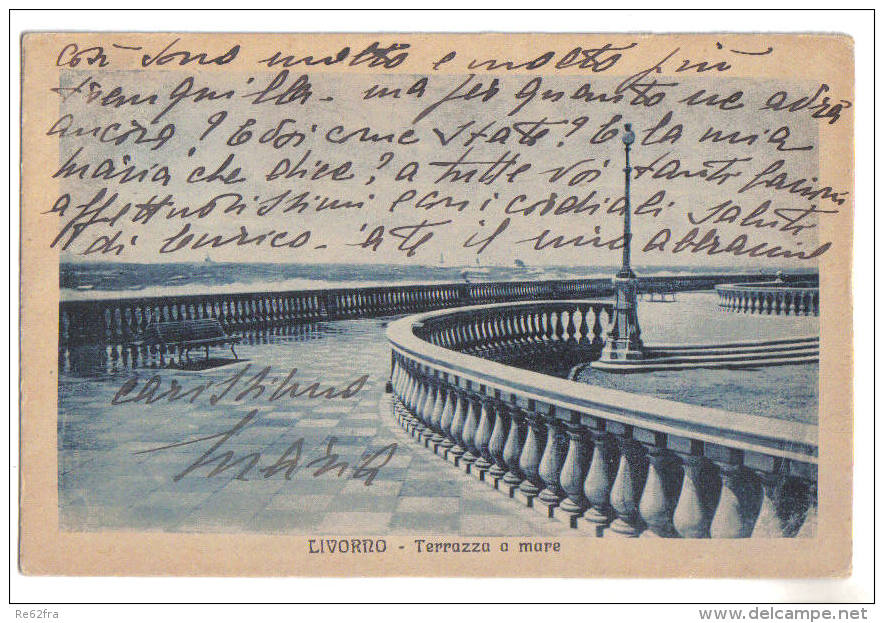 Così sono molto e molto più
tranquilla. ma per quanto ne avrà
ancora? E voi come state? E la mia
Maria che dice? a tutte voi tanti
affettuosissimi e cari cordiali saluti
di Enrico. a te il mio abbraccio
carissimo
Maria
LIVORNO - Terrazza a mare
Re62fra
www.delcampe.net